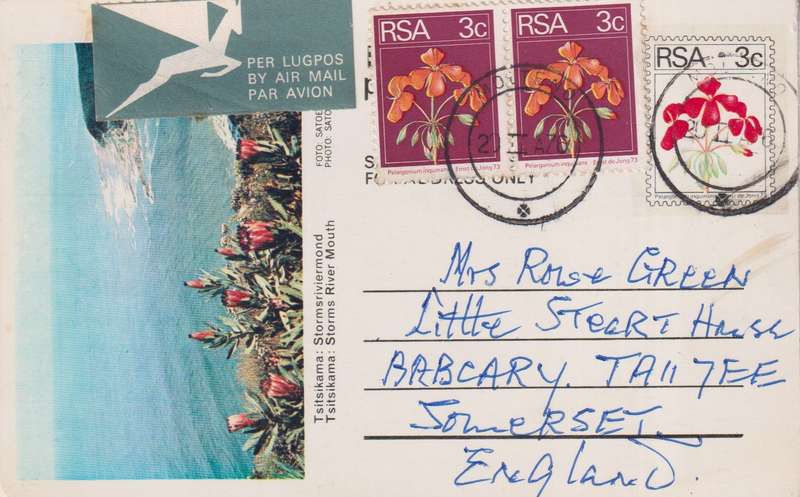 PER LUGPOS
BY AIR MAIL
PAR AVION
FOTO: SATOE
PHOTO: SATO
Tsitsikama: Stormsriviermond
Tsitsikama: Storms River Mouth
RSA 3c
Pelargonium inquinans - Ernst de Jong 73
RSA 3c
Pelargonium inquinans - Ernst de Jong 73
RSA 3c
Pelargonium inquinans - Ernst de Jong 73
ONLY
Mrs Rowse GREEN
Little STEART House
BABCARY. TA11 7EE
SOMERSET
England.